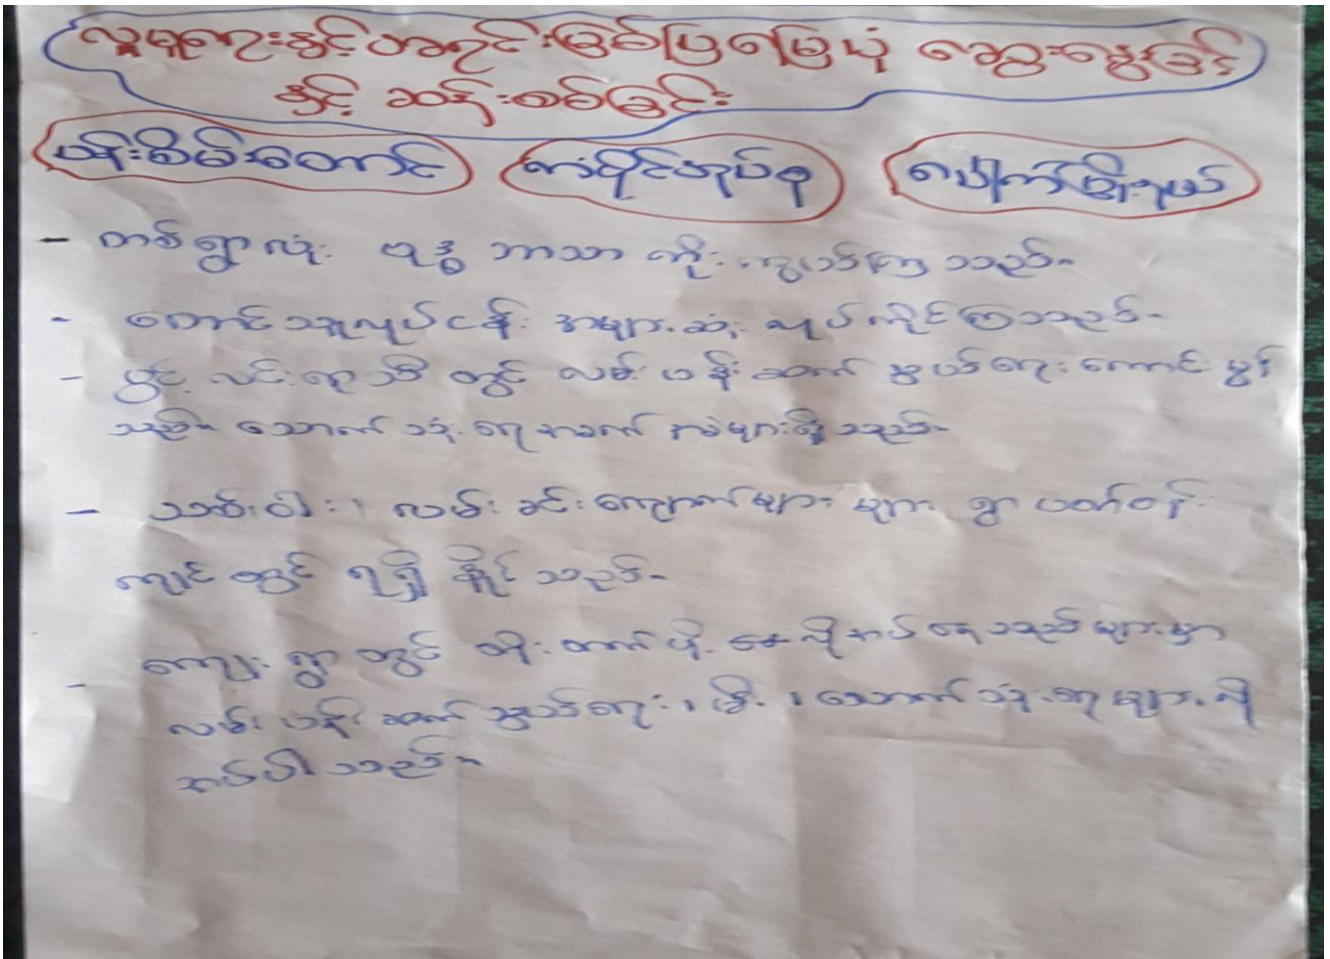 လူမှုရေးနှင့်အရင်းမြစ်ပြမြေပုံ ဆွေးနွေးခြင်း
နှင့် ဆန်းစစ်ခြင်း
ပန်းစိမ်းတောင် ကံပိုင်အုပ်စု ပေါက်မြို့နယ်
- တစ်ရွာလုံး ဗုဒ္ဓ ဘာသာ ကိုးကွယ်ကြသည်။
- တောင်သူလုပ်ငန်း အများဆုံး လုပ်ကိုင်ကြသည်။
- ပွင့်လင်းရာသီ တွင် လမ်းပန်းဆက်သွယ်ရေး ကောင်းမွန်
သည်။ သောက်သုံးရေအခက်အခဲများရှိသည်။
- သစ်၊ဝါး၊ လမ်းခင်းကျောက်များ များ ရွာပတ်ဝန်း
ကျင်တွင် ရရှိနိုင်သည်။
- ကျေးရွာတွင် တိုးတက်ဖို့ လိုအပ်နေသည်များမှာ
လမ်းပန်းဆက်သွယ်ရေး၊ မီး၊ သောက်သုံးရေများ လို
အပ်ပါသည်။